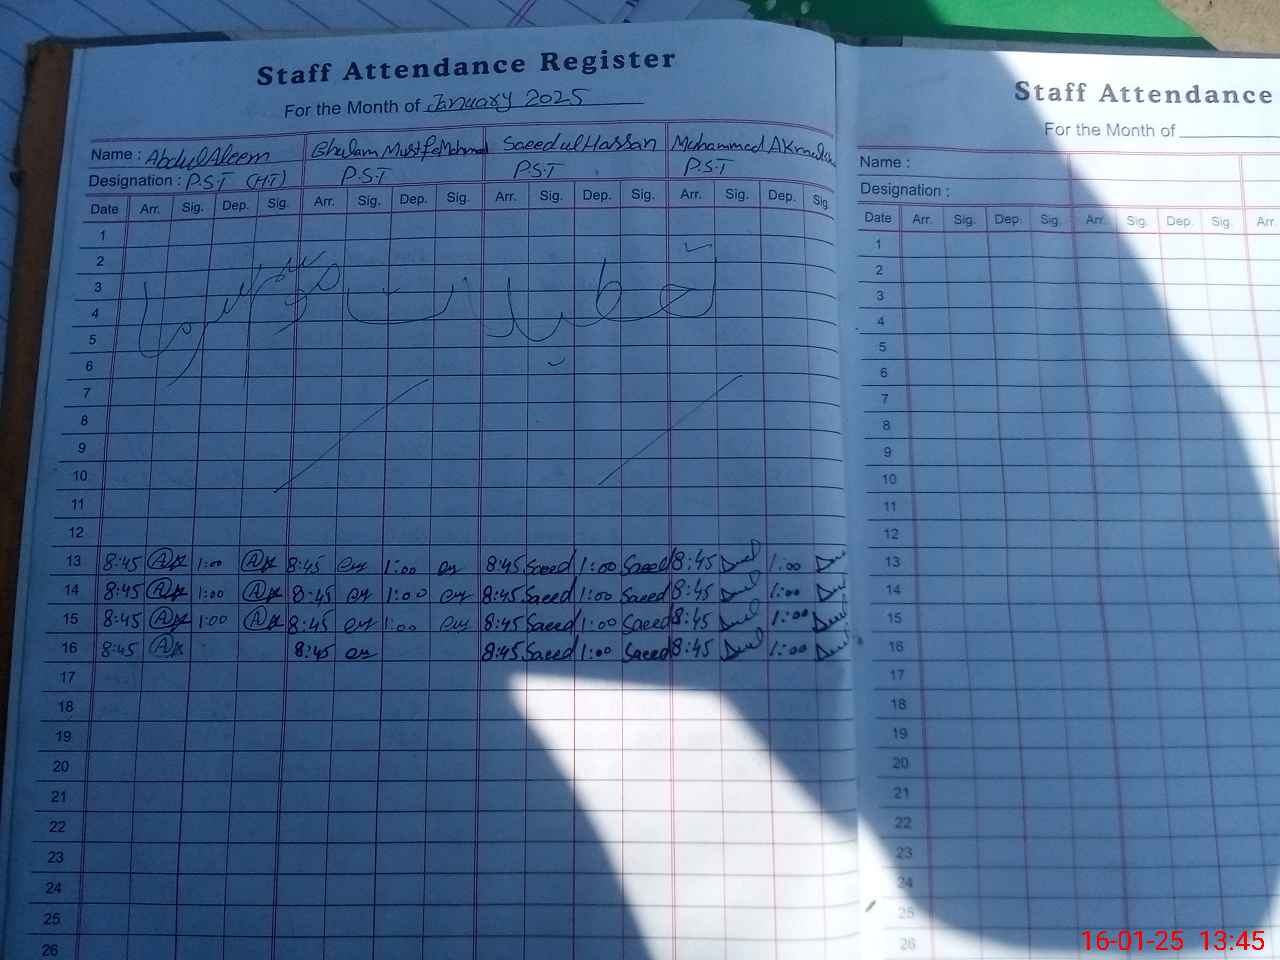 Staff Attendance Register
For the Month of January 2025
Name : Abdul Aleem Ghulam Mustfa Mehmod Saeed ul Hassan Muhammad Akram
Designation : P.S.T (HT) P.S.T P.S.T P.S.T
Date Arr. Sig. Dep. Sig. Arr. Sig. Dep. Sig. Arr. Sig. Dep. Sig. Arr. Sig. Dep. Sig.
1
2
3
4
تعطیلات موسم سرما
5
6
7
8
9
10
11
12
13 8:45 1:00 8:45 1:00 8:45 Saeed 1:00 Saeed 8:45 1:00
14 8:45 1:00 8:45 1:00 8:45 Saeed 1:00 Saeed 8:45 1:00
15 8:45 1:00 8:45 1:00 8:45 Saeed 1:00 Saeed 8:45 1:00
16 8:45 8:45 8:45 Saeed 1:00 Saeed 8:45 1:00
17
18
19
20
21
22
23
24
25
26
Staff Attendance
For the Month of
Name :
Designation :
Date Arr. Sig. Dep. Sig. Arr. Sig. Dep. Sig. Arr.
1
2
3
4
5
6
7
8
9
10
11
12
13
14
15
16
17
18
19
20
21
22
23
24
25
26
16-01-25 13:45